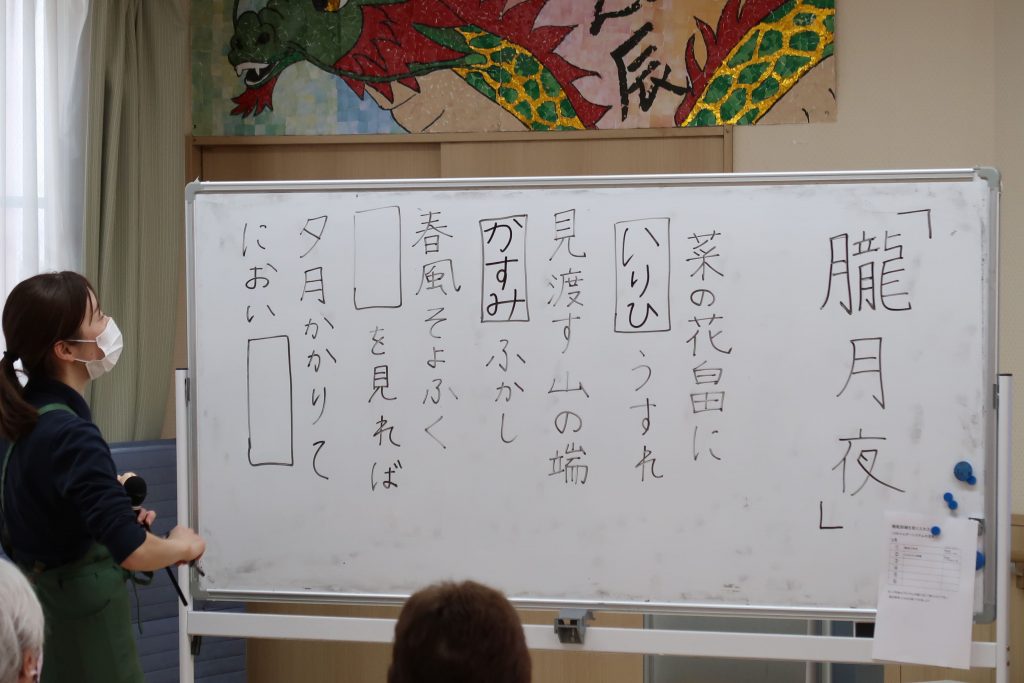 辰
「朧月夜」
菜の花畠に
いりひうすれ
見渡す山の端
かすみふかし
春風そよふく
を見れば
夕月かかりて
におい